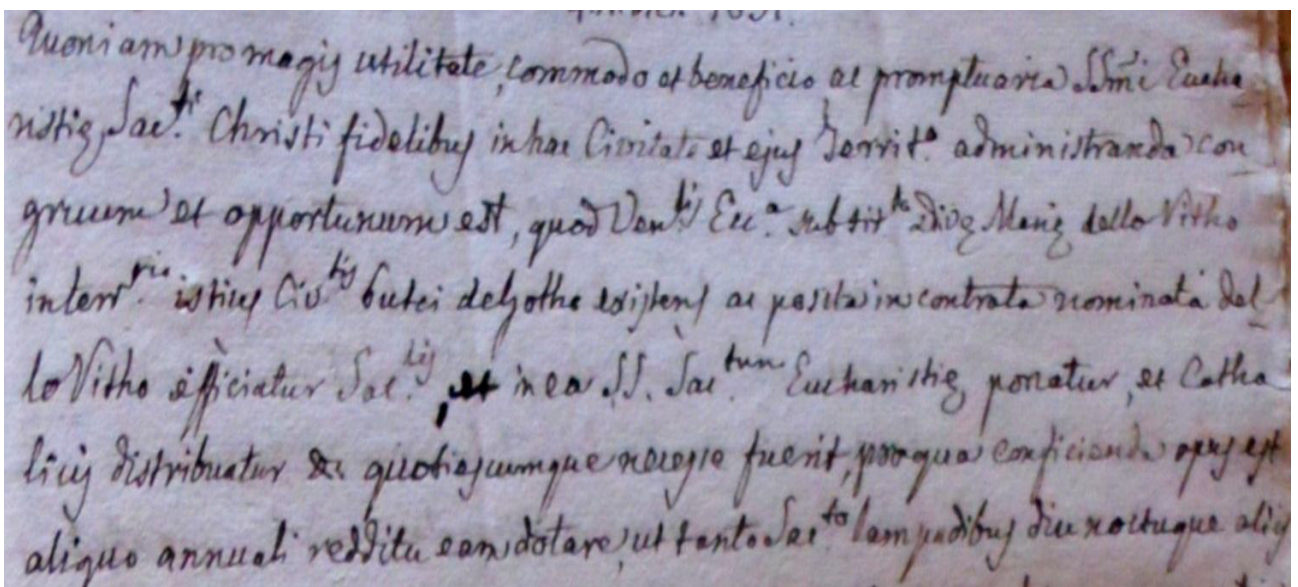 Quoniam pro magis utilitate, commodo et beneficio ac promptuaria SSmi Eucha
ristię Sac.ti Christi fidelibus in hac Civitate et ejus Territ.o administranda con
gruum et opportunum est, quod Ven.lis Ecc.a sub tit.lo Divę Marię dello Vitho
in terr.rio istius Civ.tis existens ac posita in contrata nominata del
lo Vitho efficiatur Sac.lis, et in ea SS. Sac.tum Eucharistię ponatur, et Catho
licis distribuatur quotiescumque necesse fuerit, pro qua conficienda opus est
aliquo annuali redditu eam dotare, ut tanto Sac.to lampadibus diu noctuque aliis